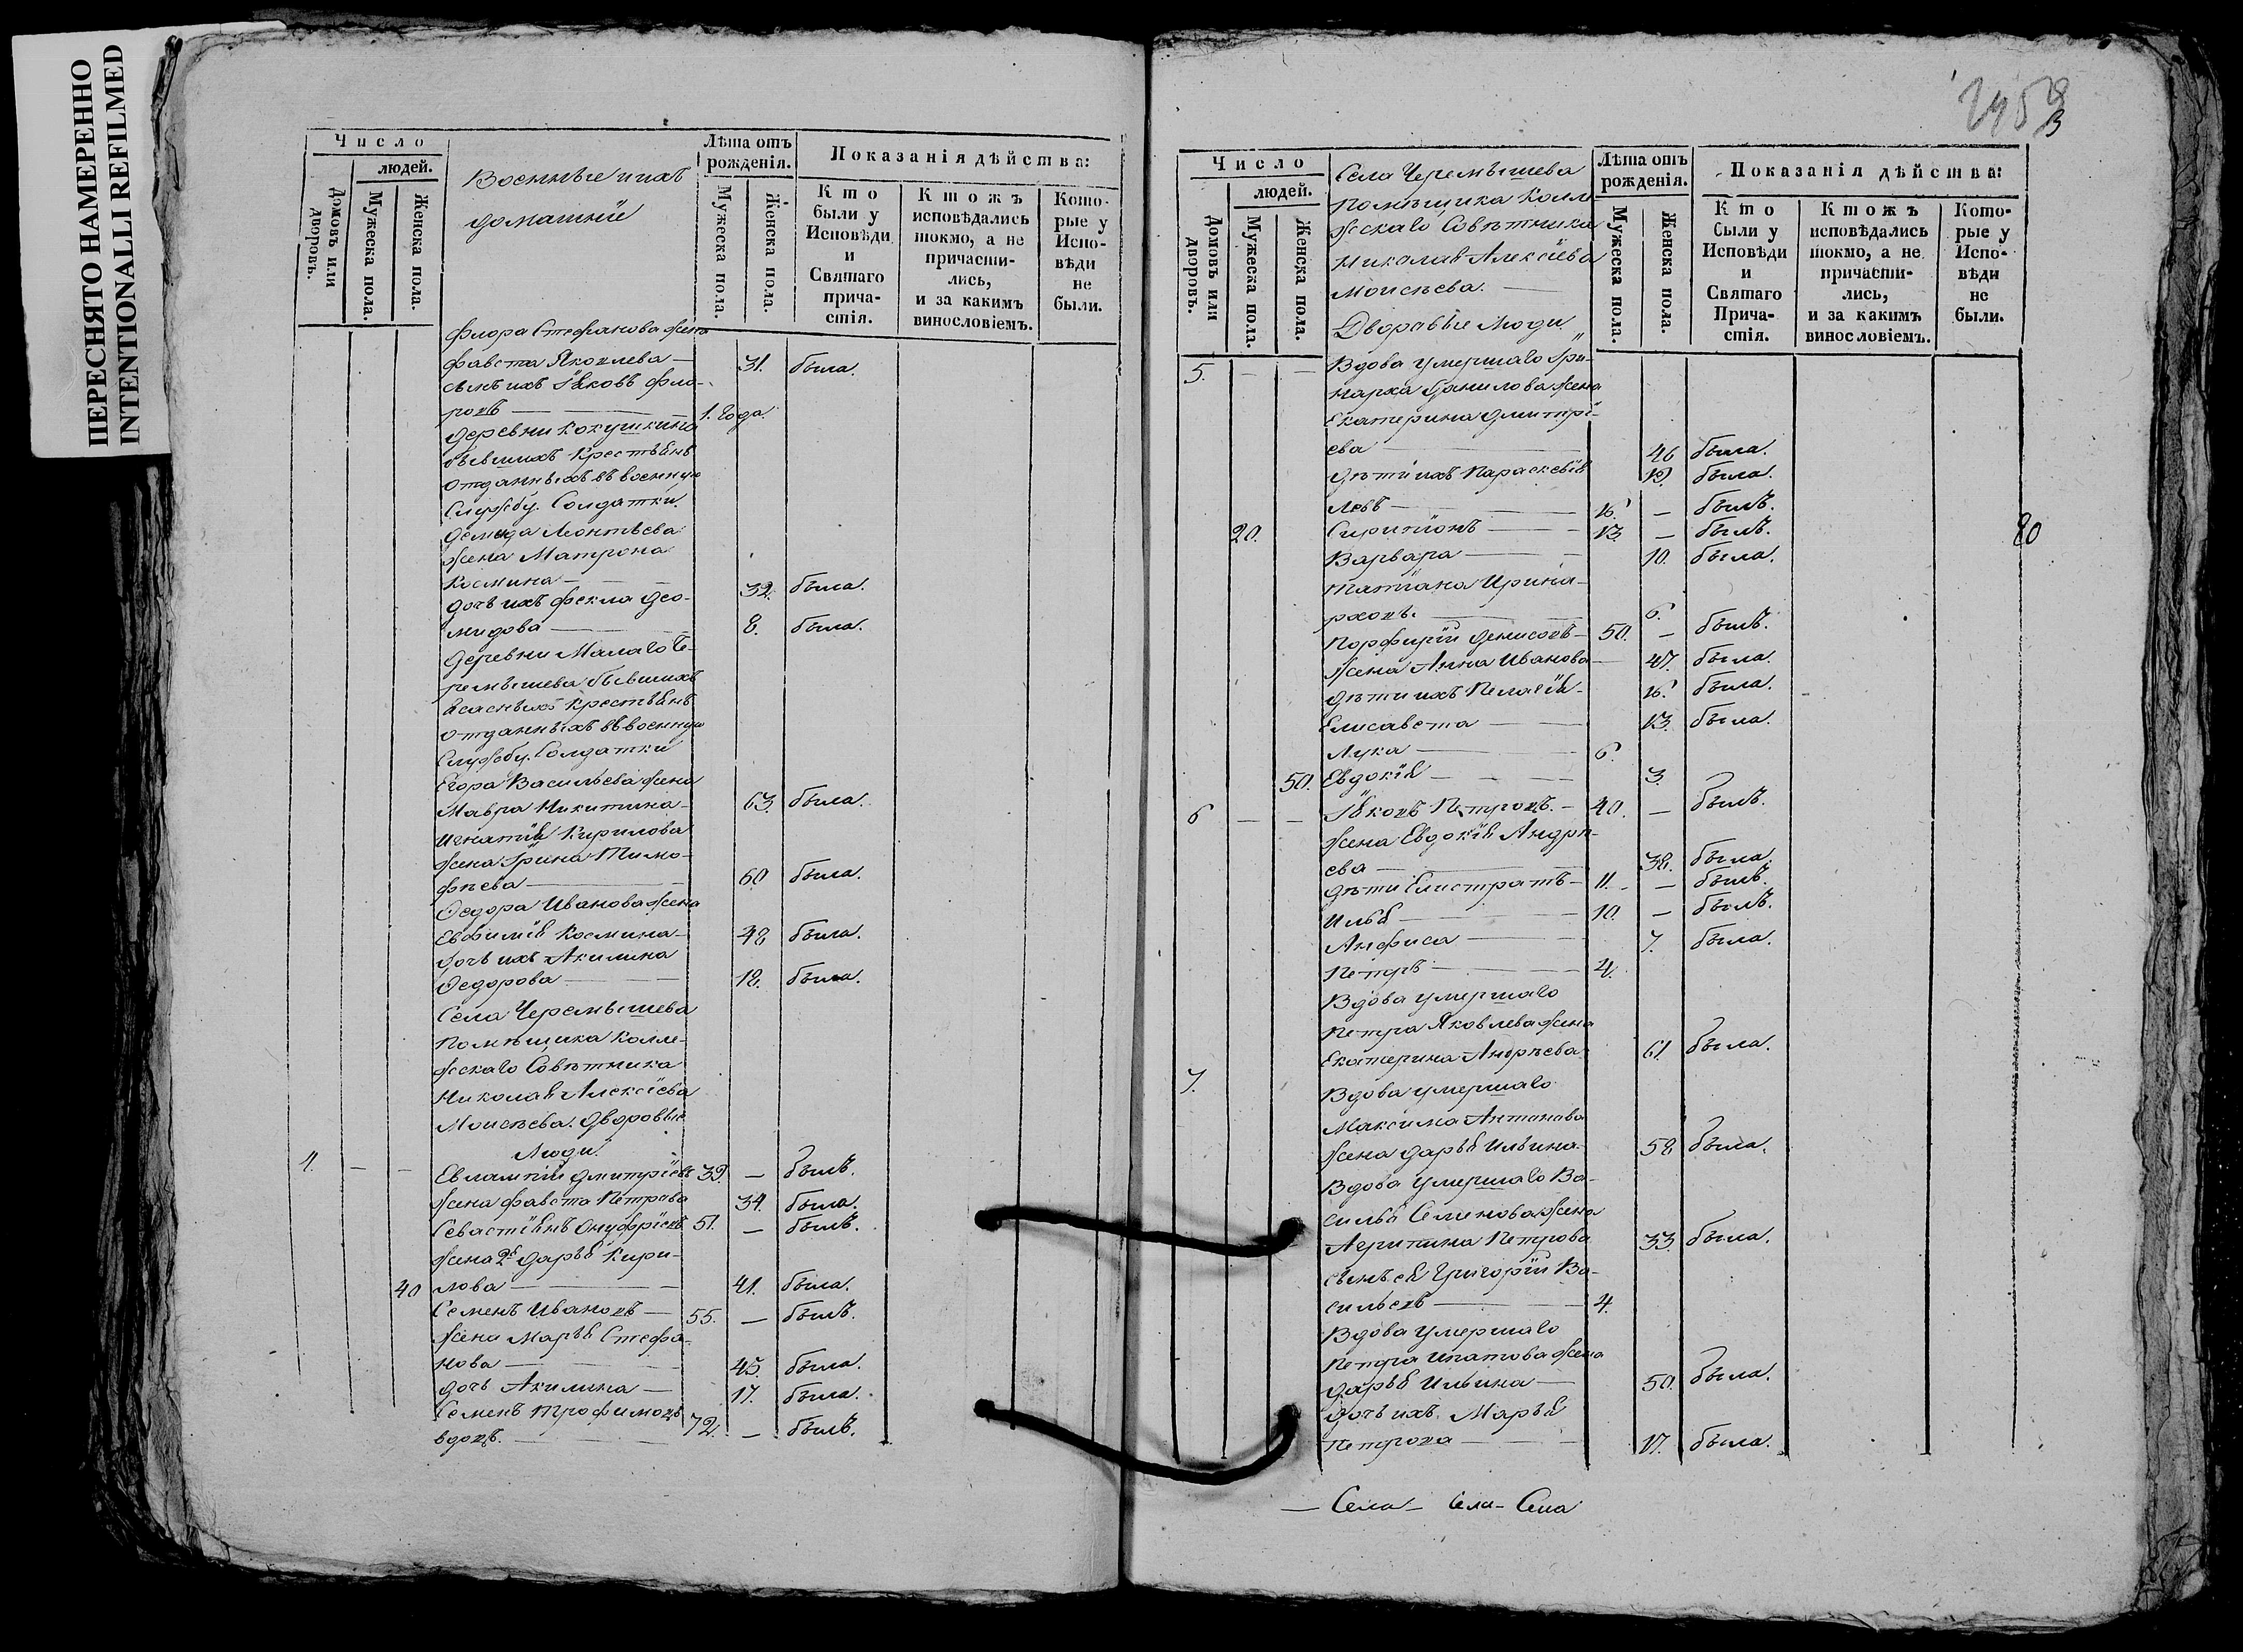 ПЕРЕСНЯТО НАМЕРЕННО
INTENTIONALLI REFILMED
Число
людей.
Домовъ или дворовъ.
Мужеска пола.
Женска пола.
Военные ихъ
домашніе
Лѣта отъ рожденія.
Мужеска пола.
Женска пола.
Показанія дѣйства:
Кто были у Исповѣди и Святаго прича-стія.
Ктожъ исповѣдались токмо, а не причасти-лись, и за какимъ винословіемъ.
Кото-рые у Испо-вѣди не были.
Флора Стефанова жена
Фавста Яковлева — 31. была.
сынъ ихъ Іяковъ Фло-
ровъ — 1. года
деревни Кокушкина
бывшихъ Крестьянъ
отданныхъ въ военную
Службу. Солдатки.
Демида Леонтьева
жена Матрона
Космина — 32. была.
дочь ихъ Фекла Део-
мидова — 8. была.
Деревни Малаго Че-
ремышева бывшихъ
Ясашныхъ Крестьянъ
отданныхъ въ военную
Службу. Солдатки
Егора Васильева жена
Мавра Никитина — 63. была.
Игнатія Кирилова
жена Ірина Тимо-
фѣева — 60 была.
Ѳедора Иванова жена
Евфимія Космина — 48 была.
дочь ихъ Акилина
Ѳедорова — 18. была.
Села Черемышева
Помѣщика Колле-
жскаго Совѣтника
Николая Алексіева
Моисѣева. Дворовые
Люди.
4. — — Евлампій Дмитріевъ 32. — былъ.
жена Фавста Петрова 34. была.
Севастіянъ Онуфріевъ 51. — былъ.
жена 2я Дарья Кири-
40 лова — 41. была.
Семенъ Ивановъ — 55. — былъ.
жена Марья Стефа-
нова — 45. была.
дочь Акилина — 17. была.
Семенъ Трофимовъ
вдовъ. — 72. — былъ.
Число
людей.
Домовъ или дворовъ.
Мужеска пола.
Женска пола.
Села Черемышева
помѣщика Колле
жскаго Совѣтника
Николая Алексіева
Моисѣева. —
Дворовые Люди
Лѣта отъ рожденія.
Мужеска пола.
Женска пола.
Показанія дѣйства:
Кто были у Исповѣди и Святаго Прича-стія.
Ктожъ исповѣдались токмо, а не причасти-лись, и за какимъ винословіемъ.
Кото-рые у Испо-вѣди не были.
5. — — Вдова умершаго Іри-
нарха Данилова жена
Екатерина Дмитрі-
ева — 46 была.
дѣти ихъ Параскевія 19. была.
Левъ — 16. — былъ.
20. Спиридонъ — 13. — былъ.
80
Варвара — 10. была.
Татіана Ирина-
рхова — 6.
Порфирій Денисовъ — 50. — былъ.
жена Анна Иванова — 47. была.
дѣти ихъ Пелагія — 16. была.
Елисавета — 13. была.
Лука — 6.
50. Евдокія — 3.
6 — — Іяковъ Петровъ. — 40. — былъ.
жена Евдокія Андрѣ-
ева — 38. была.
дѣти Елистратъ — 11. — былъ.
Илья — 10. — былъ.
Анфиса — 7. была.
Петръ — 4.
Вдова умершаго
Петра Яковлева жена
Екатерина Андрѣева 61 была.
7. Вдова умершаго
Максима Антонова
жена Дарья Ильина. 58 была.
Вдова умершаго Ва-
силья Семенова жена
Агрипина Петрова 33. была.
сынъ ея Григорій Ва-
сильевъ — 4.
Вдова умершаго
Петра Ипатова жена
Дарья Ильина — 50. была.
дочь ихъ Марья
Петрова — 17. была.
— Села — Села — Села